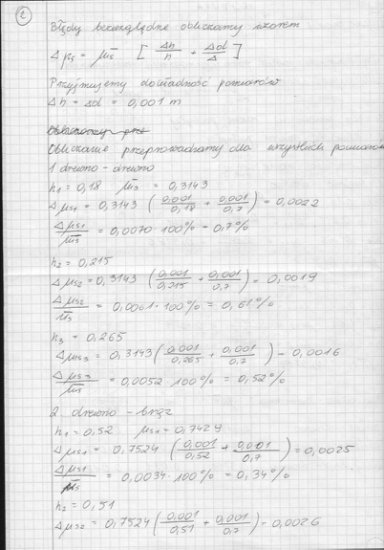 2
Błędy bezwzględne obliczamy wzorem
Δμs = μ̄s [ Δh/h + Δd/Δ ]
Przyjmujemy dokładność pomiarów
Δh = Δd = 0,001 m
Obliczanie przeprowadzamy dla wszystkich pomiarów
1 drewno - drewno
h₁ = 0,18 μ̄s = 0,3143
Δμs₁ = 0,3143 ( 0,001/0,18 + 0,001/0,7 ) = 0,0022
Δμs₁/μ̄s = 0,0070 · 100% = 0,7%
h₂ = 0,215
Δμs₂ = 0,3143 ( 0,001/0,215 + 0,001/0,7 ) = 0,0019
Δμs₂/μ̄s = 0,0061 · 100% = 0,61%
h₃ = 0,265
Δμs₃ = 0,3143 ( 0,001/0,265 + 0,001/0,7 ) = 0,0016
Δμs₃/μ̄s = 0,0052 · 100% = 0,52%
2. drewno - brąz
h₁ = 0,52 μs₁ = 0,7429
Δμs₁ = 0,7524 ( 0,001/0,52 + 0,001/0,7 ) = 0,0025
Δμs₁/μ̄s = 0,0034 · 100% = 0,34%
h₂ = 0,51
Δμs₂ = 0,7524 ( 0,001/0,51 + 0,001/0,7 ) = 0,0026